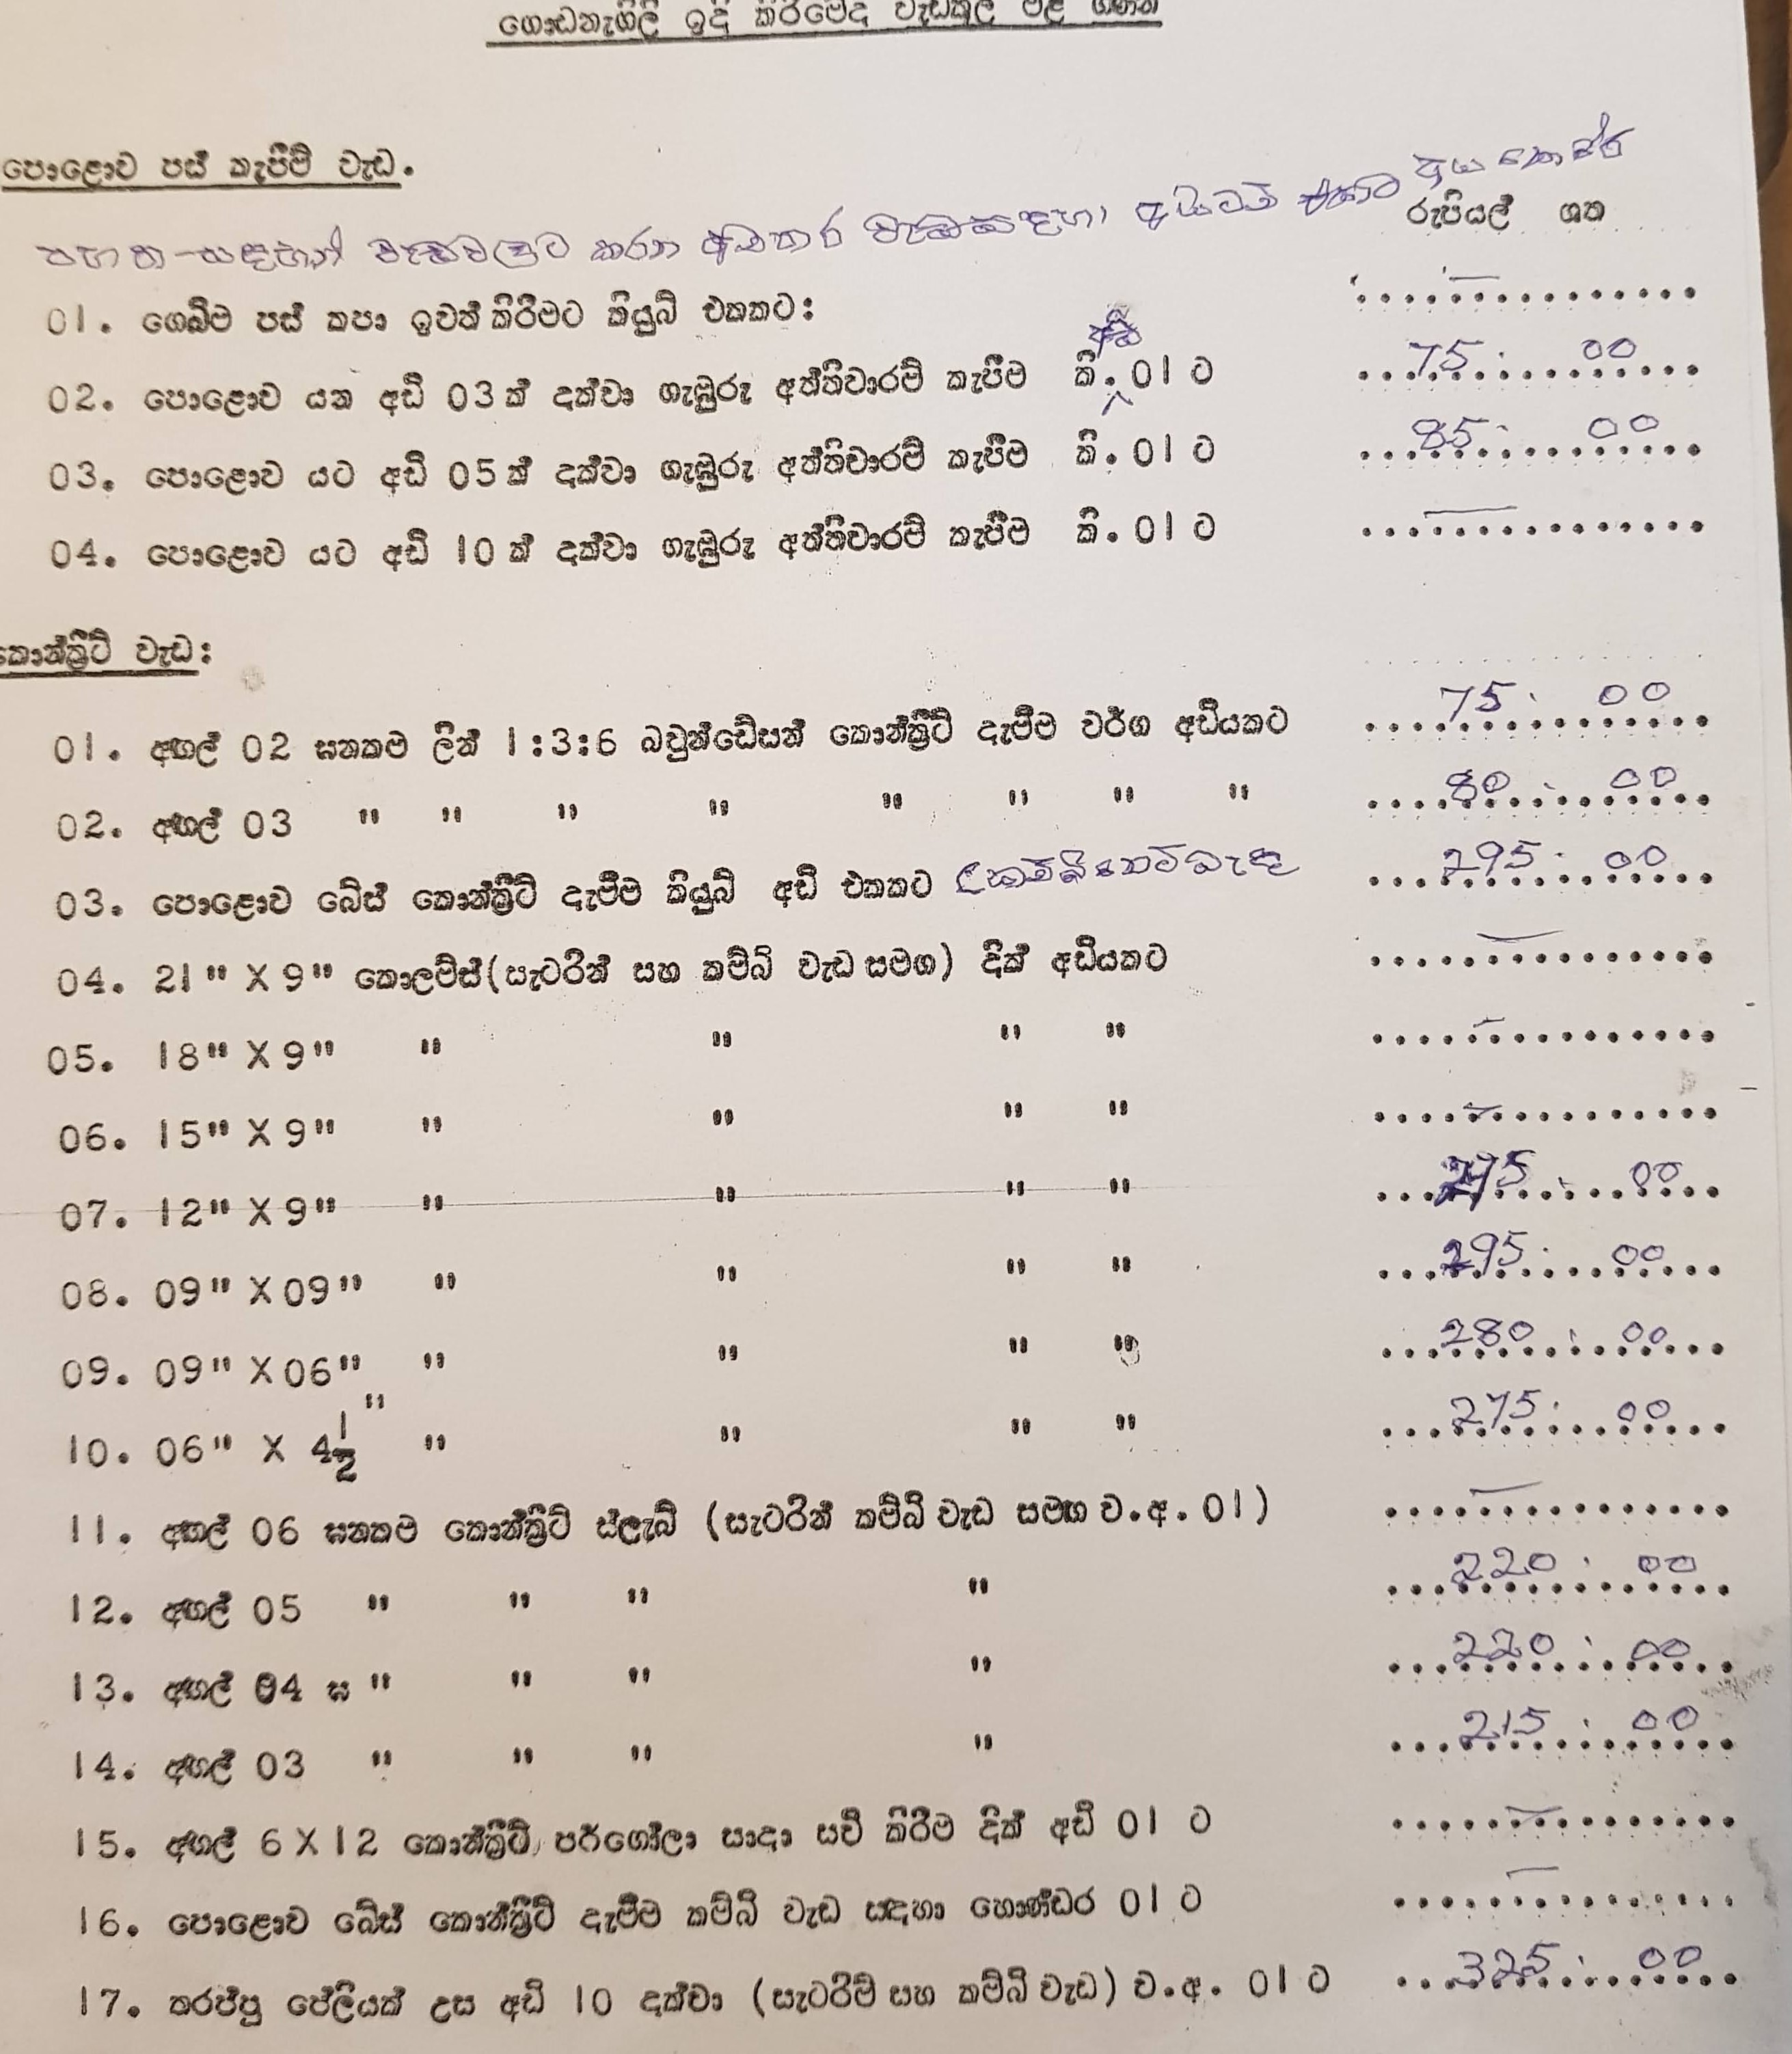 ගොඩනැගිලි ඉදි කිරීමේදී වැඩකුලී මිළ ගණන්
පොළොව පස් කැපීම් වැඩ.
පහත සඳහන් වැඩවලට කරන අමතර වැඩ සඳහා
රුපියල් ශත
01. ගෙබිම පස් කපා ඉවත් කිරීමට කියුබ් එකකට: —
අඩි
02. පොළොව යන අඩි 03ක් දක්වා ගැඹුරු අත්තිවාරම් කැපීම කි.01ට 75.00
03. පොළොව යට අඩි 05ක් දක්වා ගැඹුරු අත්තිවාරම් කැපීම කි.01ට 85.00
04. පොළොව යට අඩි 10ක් දක්වා ගැඹුරු අත්තිවාරම් කැපීම කි.01ට —
කොන්ක්‍රීට් වැඩ:
01. අඟල් 02 ඝනකම ලින් 1:3:6 බවුන්ඩේසන් කොන්ක්‍රීට් දැමීම වර්ග අඩියකට 75.00
02. අඟල් 03 " " " " " " " " 80.00
03. පොළොව බේස් කොන්ක්‍රීට් දැමීම කියුබ් අඩි එකකට 295.00
04. 21" X 9" කොලම්ස්(සැටරින් සහ කම්බි වැඩ සමග) දික් අඩියකට —
05. 18" X 9" " " " " —
06. 15" X 9" " " " " —
07. 12" X 9" " " " " 00
08. 09" X 09" " " " " 295.00
09. 09" X 06" " " " " 280.00
10. 06" X 4½" " " " " 275.00
11. අඟල් 06 ඝනකම කොන්ක්‍රීට් ස්ලැබ් (සැටරින් කම්බි වැඩ සමඟ ව.අ.01) —
12. අඟල් 05 " " " " 220.00
13. අඟල් 04 ඝ " " " " 220.00
14. අඟල් 03 " " " " 215.00
15. අඟල් 6 X 12 කොන්ක්‍රීට් පර්ගෝලා සාදා සවි කිරීම දික් අඩි 01 ට —
16. පොළොව බේස් කොන්ක්‍රීට් දැමීම කම්බි වැඩ සඳහා හොණ්ඩර 01 ට —
17. තරප්පු පේලියක් උස අඩි 10 දක්වා (සැටරිම් සහ කම්බි වැඩ) ව.අ. 01 ට 325.00